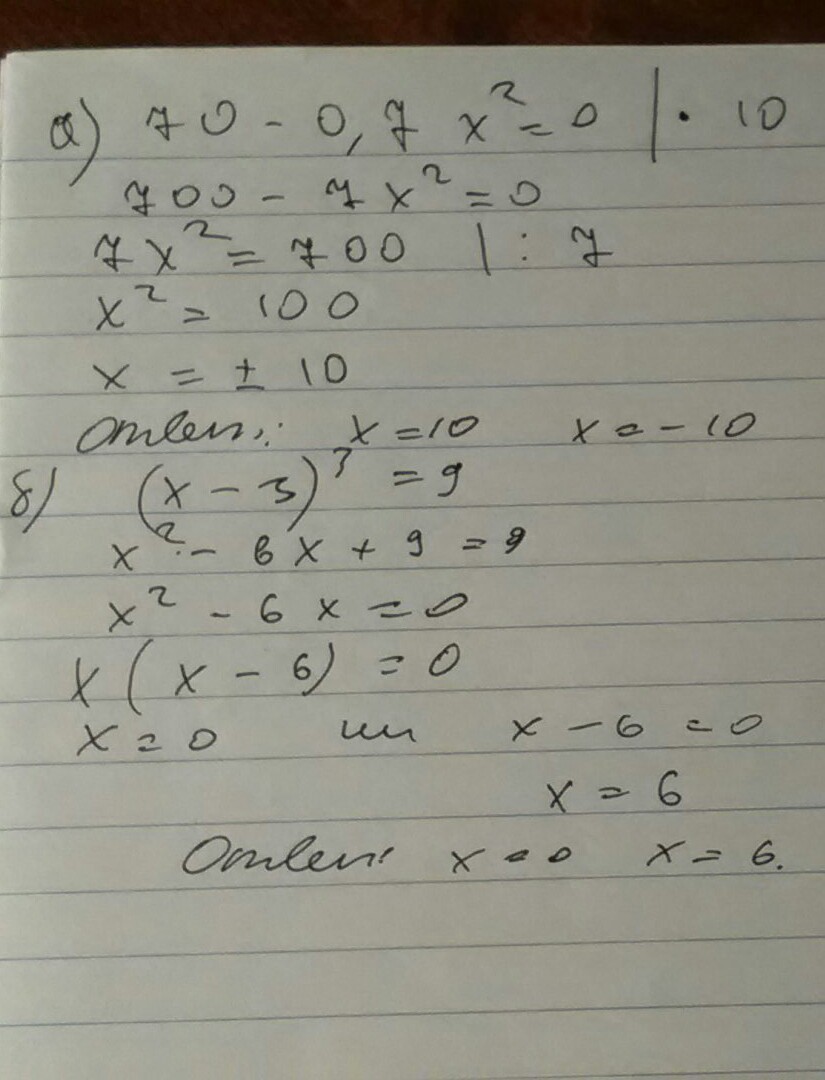 а) 70 - 0,7 x² = 0 | · 10
700 - 7x² = 0
7x² = 700 | : 7
x² = 100
x = ± 10
Ответ: x = 10 x = - 10
б) (x - 3)² = 9
x² - 6x + 9 = 9
x² - 6x = 0
x(x - 6) = 0
x = 0 или x - 6 = 0
x = 6
Ответ: x = 0 x = 6.